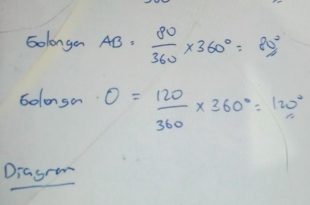 Golongan AB = 80/360 × 360° = 80°
Golongan O = 120/360 × 360° = 120°
Diagram